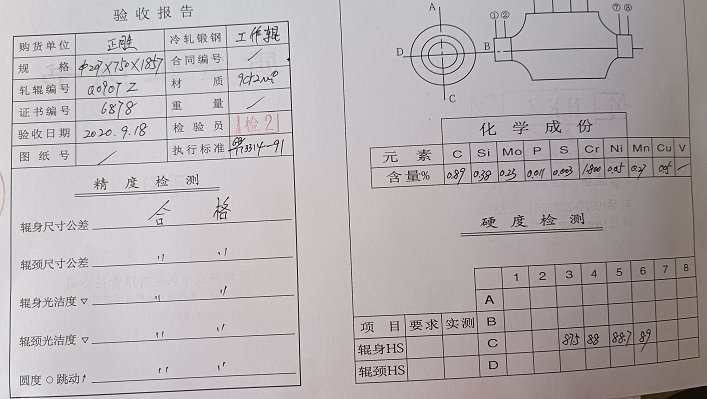 验收报告
购货单位 正胜 冷轧锻钢 工作辊
规格 Φ297×750×1857 合同编号 /
轧辊编号 Q0907Z 材质 9Cr2Mo
证书编号 6878 重量 /
验收日期 2020.9.18 检验员 检2
图纸号 / 执行标准 13314-91
精度检测
辊身尺寸公差 合格
辊颈尺寸公差 〃 〃
辊身光洁度▽ 〃 〃
辊颈光洁度▽ 〃 〃
圆度○跳动↗ 〃 〃
A
①② ⑦⑧
D B
C
化学成份
元素 C Si Mo P S Cr Ni Mn Cu V
含量% 0.89 0.38 0.23 0.011 0.003 1.800 0.05 0.27 0.05 /
硬度检测
1 2 3 4 5 6 7 8
A
项目 要求 实测 B
辊身HS C 87.5 88 88.7 89
辊颈HS D